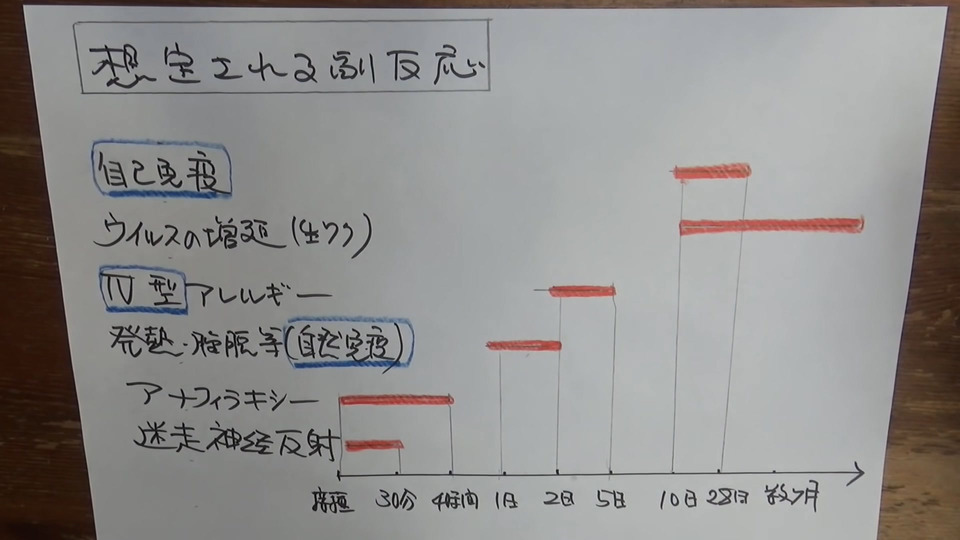 想定される副反応
自己免疫
ウイルスの増殖(生ワク)
IV型アレルギー
発熱・腫脹等(自然免疫)
アナフィラキシー
迷走神経反射
接種 30分 4時間 1日 2日 5日 10日 28日 数ヶ月